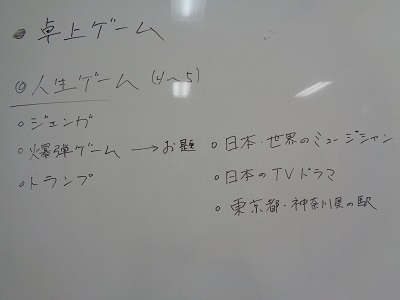 ● 卓上ゲーム
◎ 人生ゲーム (4〜5)
○ ジェンガ
○ 爆弾ゲーム → お題 ○ 日本・世界のミュージシャン
○ トランプ
○ 日本のTVドラマ
○ 東京都・神奈川県の駅